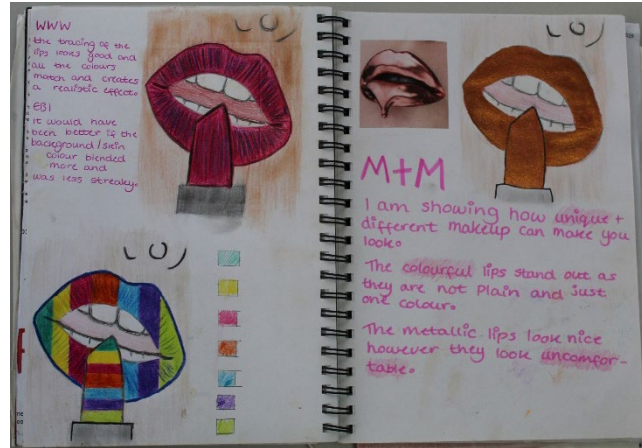 WWW
the tracing of the
lips looks good and
all the colours
match and creates
a realistic effect.
EBI
It would have
been better if the
background/skin
colour blended
more and
was less streaky.
M+M
I am showing how unique +
different makeup can make you
look.
The colourful lips stand out as
they are not plain and just
one colour.
The metallic lips look nice
however they look uncomfor-
table.